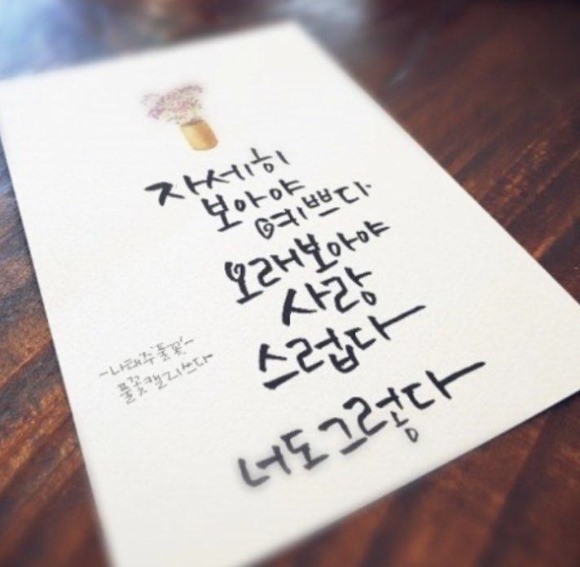 자세히
보아야
예쁘다.
오래보아야
사랑
스럽다
너도그렇다
~나태주'풀꽃'~
풀꽃캘리쓰다